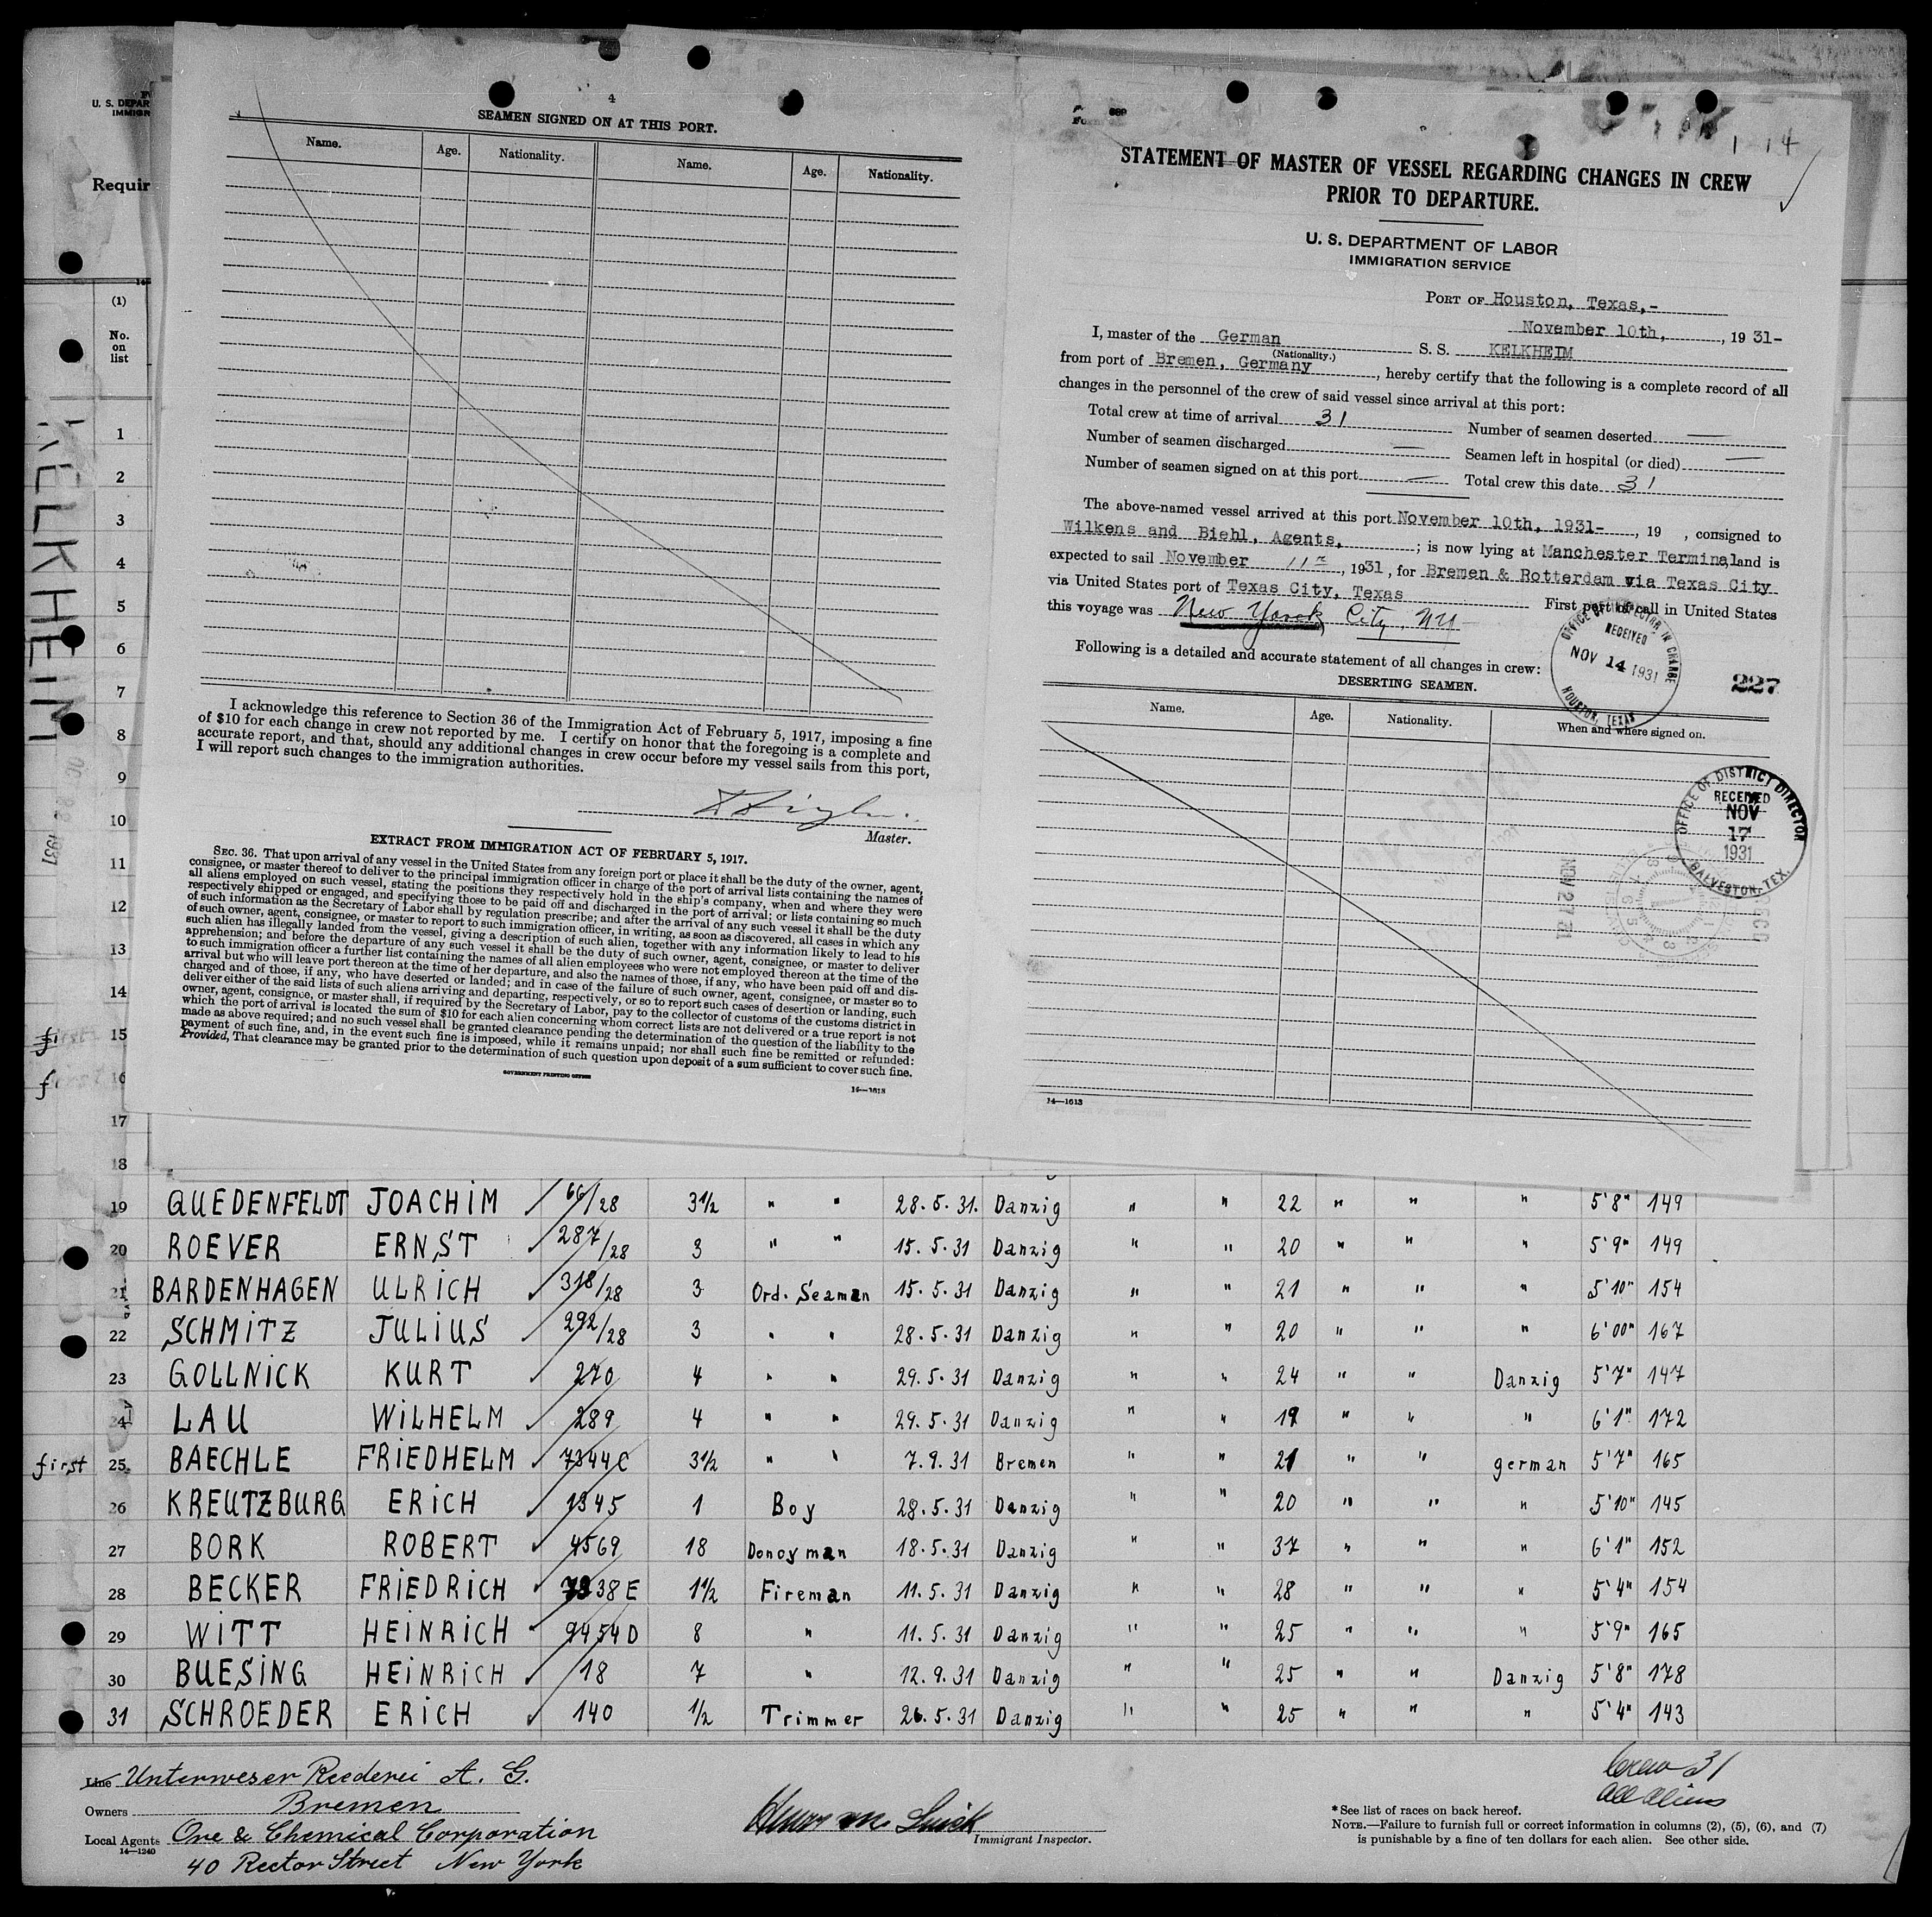 4
SEAMEN SIGNED ON AT THIS PORT.
Name. Age. Nationality. Name. Age. Nationality.
I acknowledge this reference to Section 36 of the Immigration Act of February 5, 1917, imposing a fine
of $10 for each change in crew not reported by me. I certify on honor that the foregoing is a complete and
accurate report, and that, should any additional changes in crew occur before my vessel sails from this port,
I will report such changes to the immigration authorities.
Master.
EXTRACT FROM IMMIGRATION ACT OF FEBRUARY 5, 1917.
SEC. 36. That upon arrival of any vessel in the United States from any foreign port or place it shall be the duty of the owner, agent,
consignee, or master thereof to deliver to the principal immigration officer in charge of the port of arrival lists containing the names of
all aliens employed on such vessel, stating the positions they respectively hold in the ship's company, when and where they were
respectively shipped or engaged, and specifying those to be paid off and discharged in the port of arrival; or lists containing so much
of such information as the Secretary of Labor shall by regulation prescribe; and after the arrival of any such vessel it shall be the duty
of such owner, agent, consignee, or master to report to such immigration officer, in writing, as soon as discovered, all cases in which any
such alien has illegally landed from the vessel, giving a description of such alien, together with any information likely to lead to his
apprehension; and before the departure of any such vessel it shall be the duty of such owner, agent, consignee, or master to deliver
to such immigration officer a further list containing the names of all alien employees who were not employed thereon at the time of the
arrival but who will leave port thereon at the time of her departure, and also the names of those, if any, who have been paid off and dis-
charged and of those, if any, who have deserted or landed; and in case of the failure of such owner, agent, consignee, or master so to
deliver either of the said lists of such aliens arriving and departing, respectively, or so to report such cases of desertion or landing, such
owner, agent, consignee, or master shall, if required by the Secretary of Labor, pay to the collector of customs of the customs district in
which the port of arrival is located the sum of $10 for each alien concerning whom correct lists are not delivered or a true report is not
made as above required; and no such vessel shall be granted clearance pending the determination of the question of the liability to the
payment of such fine, and, in the event such fine is imposed, while it remains unpaid; nor shall such fine be remitted or refunded:
Provided, That clearance may be granted prior to the determination of such question upon deposit of a sum sufficient to cover such fine.
GOVERNMENT PRINTING OFFICE
14
STATEMENT OF MASTER OF VESSEL REGARDING CHANGES IN CREW
PRIOR TO DEPARTURE.
U. S. DEPARTMENT OF LABOR
IMMIGRATION SERVICE
PORT OF Houston, Texas,-
November 10th, , 19 31-
I, master of the German S. S. KELKHEIM
(Nationality.)
from port of Bremen, Germany , hereby certify that the following is a complete record of all
changes in the personnel of the crew of said vessel since arrival at this port:
Total crew at time of arrival 31 Number of seamen deserted —
Number of seamen discharged — Seamen left in hospital (or died) —
Number of seamen signed on at this port — Total crew this date 31
The above-named vessel arrived at this port November 10th, 1931- , 19 , consigned to
Wilkens and Biehl, Agents, ; is now lying at Manchester Terminal and is
expected to sail November 11th , 1931, for Bremen & Rotterdam via Texas City
via United States port of Texas City, Texas First port of call in United States
this voyage was New Yorck City, NY
Following is a detailed and accurate statement of all changes in crew:
OFFICE OF INSPECTOR IN CHARGE
RECEIVED
NOV 14 1931
HOUSTON, TEXAS
227
DESERTING SEAMEN.
Name. Age. Nationality. When and where signed on.
OFFICE OF DISTRICT DIRECTOR
RECEIVED
NOV
17
1931
GALVESTON, TEX.
NOV 27 31
14—1613
U. S. DEPAR
IMMIGR
Requir
(1)
No.
on
list
KELKHEIM
1931
1
2
3
4
5
6
7
8
9
10
11
12
13
14
15
16
17
18
19 QUEDENFELDT JOACHIM 66/28 3½ " " 28.5.31. Danzig " " 22 " " " 5'8" 149
20 ROEVER ERNST 287/28 3 " " 15.5.31 Danzig " " 20 " " " 5'9" 149
21 BARDENHAGEN ULRICH 318/28 3 Ord. Seaman 15.5.31 Danzig " " 21 " " " 5'10" 154
22 SCHMITZ JULIUS 292/28 3 " " 28.5.31 Danzig " " 20 " " " 6'00" 167
23 GOLLNICK KURT 270 4 " " 29.5.31 Danzig " " 24 " " Danzig 5'7" 147
24 LAU WILHELM 289 4 " " 29.5.31 Danzig " " 19 " " " 6'1" 172
first 25 BAECHLE FRIEDHELM 7344C 3½ " " 7.9.31 Bremen " " 21 " " german 5'7" 165
26 KREUTZBURG ERICH 1345 1 Boy 28.5.31 Danzig " " 20 " " " 5'10" 145
27 BORK ROBERT 4569 18 Donoyman 18.5.31 Danzig " " 37 " " " 6'1" 152
28 BECKER FRIEDRICH 7338E 1½ Fireman 11.5.31 Danzig " " 28 " " " 5'4" 154
29 WITT HEINRICH 9454D 8 " 11.5.31 Danzig " " 25 " " " 5'9" 165
30 BUESING HEINRICH 18 7 " 12.9.31 Danzig " " 25 " " Danzig 5'8" 178
31 SCHROEDER ERICH 140 ½ Trimmer 26.5.31 Danzig " " 25 " " " 5'4" 143
Line Unterweser Reederei A. G.
Owners Bremen
Local Agents Ore & Chemical Corporation
14—1240
40 Rector Street New York
Immigrant Inspector.
Crew 31
All Aliens
*See list of races on back hereof.
NOTE.—Failure to furnish full or correct information in columns (2), (5), (6), and (7)
is punishable by a fine of ten dollars for each alien. See other side.